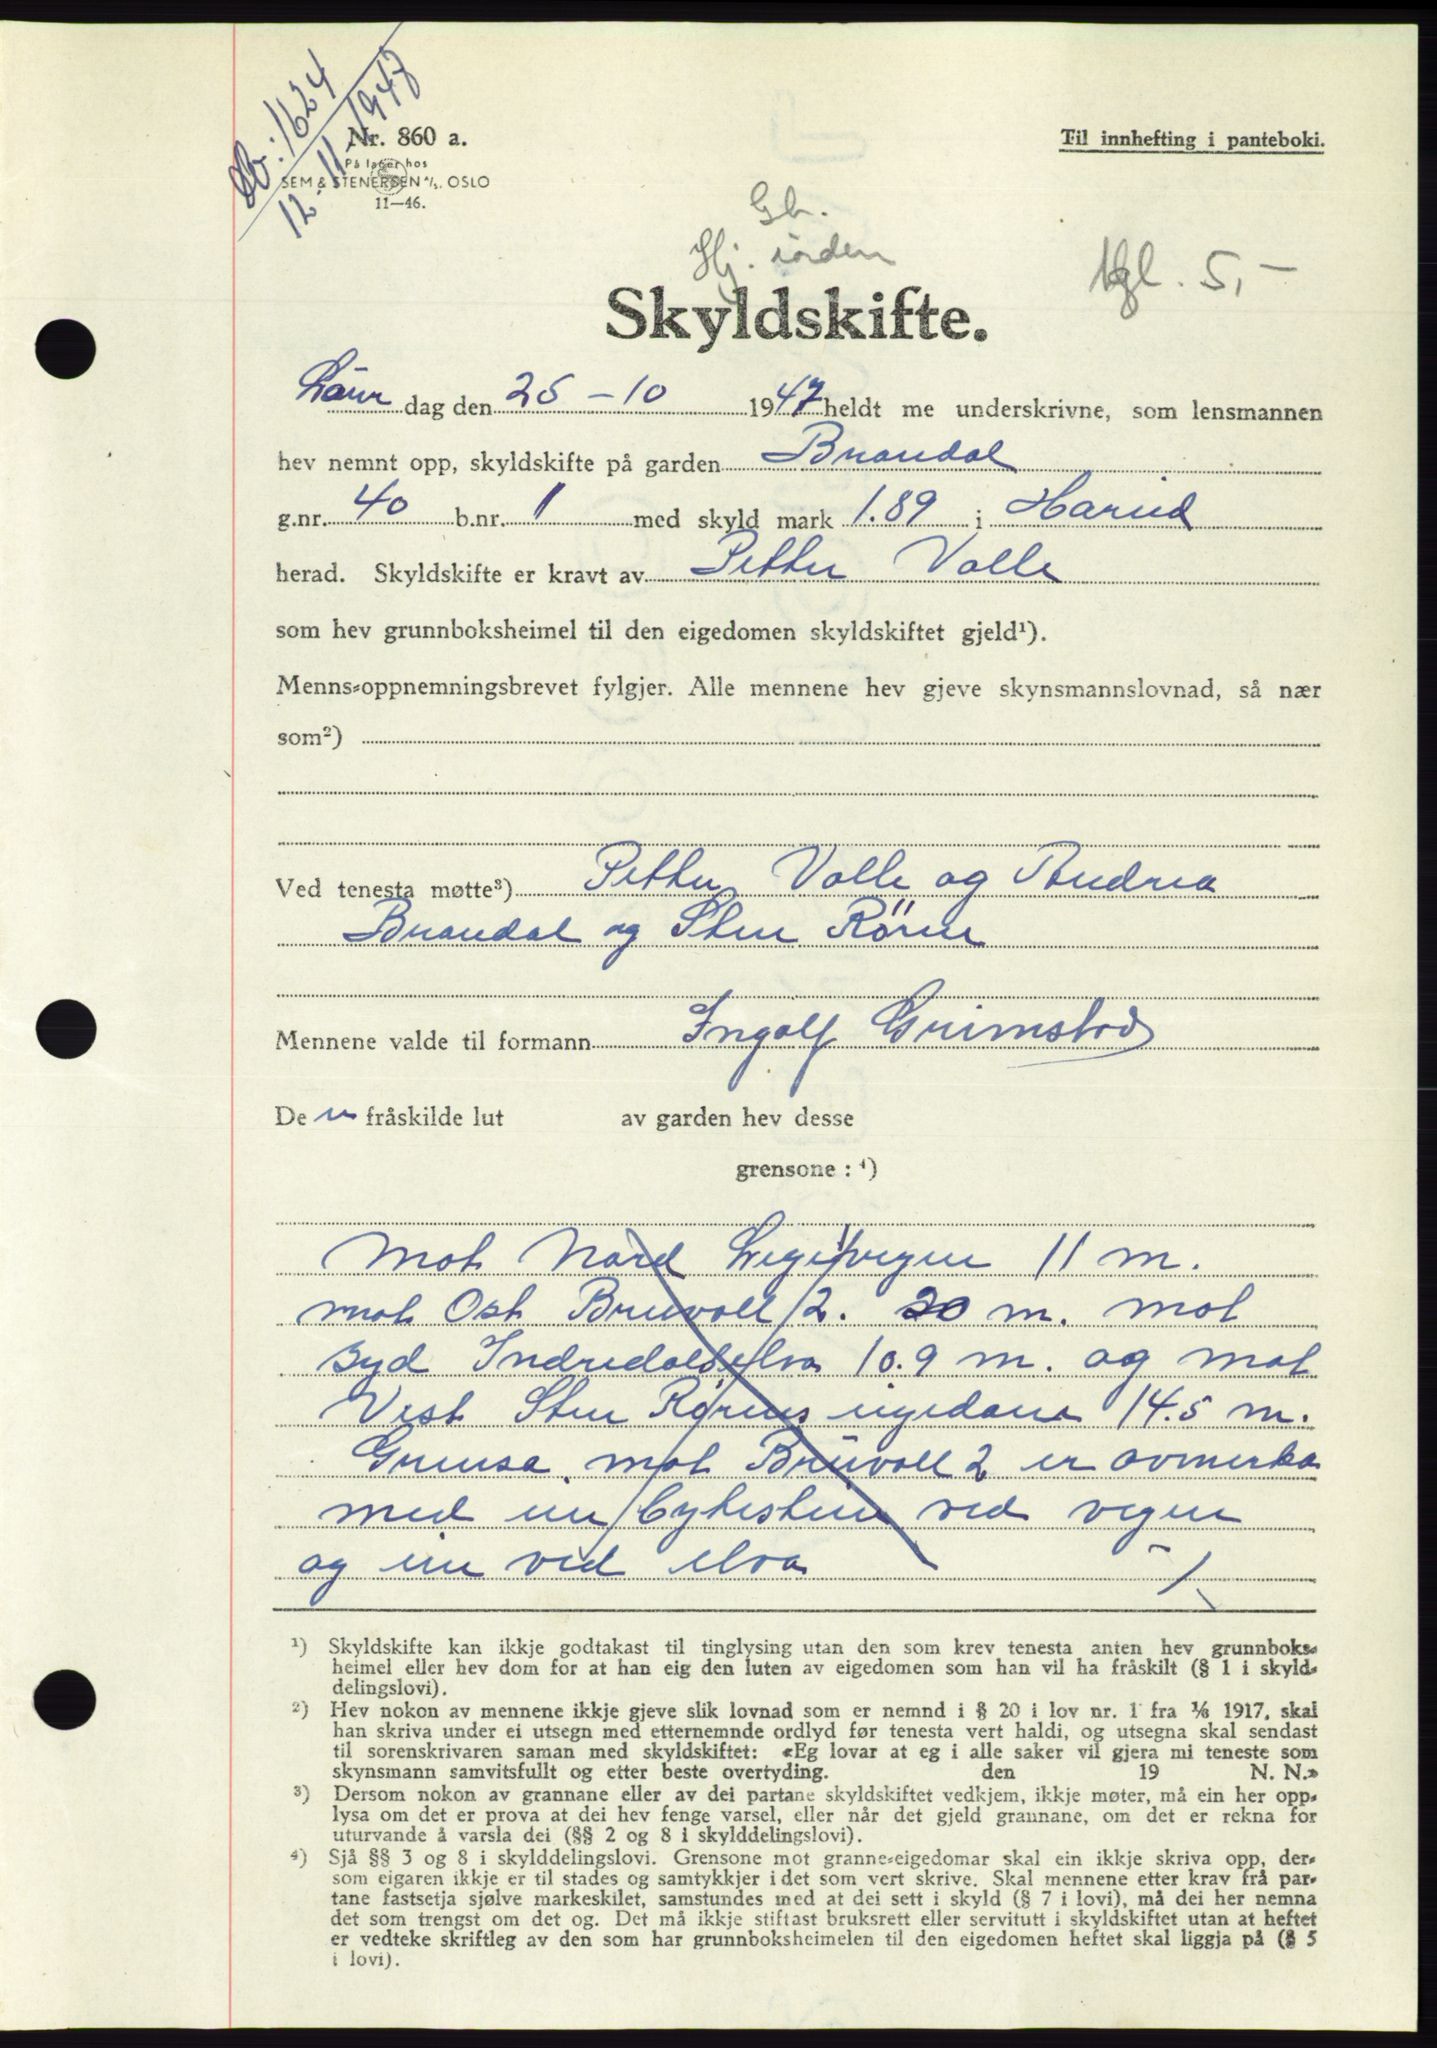 Db: 1624
12. 11 1947
Nr. 860 a.
På lager hos
SEM & STENERSEN A/S. OSLO
11—46.
Til innhefting i panteboki.
Gb.
Hj.
Tgl. 5,-
Skyldskifte.
Laur dag den 25 – 10 1947 heldt me underskrivne, som lensmannen
hev nemnt opp, skyldskifte på garden Brandal
g.nr. 40 b.nr. 1 med skyld mark 1.89 i Hareid
herad. Skyldskifte er kravt av Petter Valle
som hev grunnboksheimel til den eigedomen skyldskiftet gjeld¹).
Menns-oppnemningsbrevet fylgjer. Alle mennene hev gjeve skynsmannslovnad, så nær
som²)
Ved tenesta møtte³) Petter Valle og Andrea
Brandal og Sten Rörne
Mennene valde til formann Ingolf Grimstad
De n fråskilde lut av garden hev desse
grensone : ⁴)
Mot Nord vegen 11 m.
mot Ost Bruvoll 2. 20 m. mot
Syd Indredalselva 10.9 m. og mot
Vest Sten Rørnes eigedom 14.5 m.
Grensa mot Bruvoll 2 er avmerka
med ein bytestein ved vegen
og ein ved elva
¹) Skyldskifte kan ikkje godtakast til tinglysing utan den som krev tenesta anten hev grunnboks-
heimel eller hev dom for at han eig den luten av eigedomen som han vil ha fråskilt (§ 1 i skyld-
delingslovi).
²) Hev nokon av mennene ikkje gjeve slik lovnad som er nemnd i § 20 i lov nr. 1 fra 1/6 1917, skal
han skriva under ei utsegn med etternemnde ordlyd før tenesta vert haldi, og utsegna skal sendast
til sorenskrivaren saman med skyldskiftet: «Eg lovar at eg i alle saker vil gjera mi teneste som
skynsmann samvitsfullt og etter beste overtyding. den 19 N. N.»
³) Dersom nokon av grannane eller av dei partane skyldskiftet vedkjem, ikkje møter, må ein her opp-
lysa om det er prova at dei hev fenge varsel, eller når det gjeld grannane, om det er rekna for
uturvande å varsla dei (§§ 2 og 8 i skylddelingslovi).
⁴) Sjå §§ 3 og 8 i skylddelingslovi. Grensone mot granne-eigedomar skal ein ikkje skriva opp, der-
som eigaren ikkje er til stades og samtykkjer i det som vert skrive. Skal mennene etter krav frå par-
tane fastsetja sjølve markeskilet, samstundes med at dei sett i skyld (§ 7 i lovi), må dei her nemna
det som trengst om det og. Det må ikkje stiftast bruksrett eller servitutt i skyldskiftet utan at heftet
er vedteke skriftleg av den som har grunnboksheimelen til den eigedomen heftet skal liggja på (§ 5
i lovi).